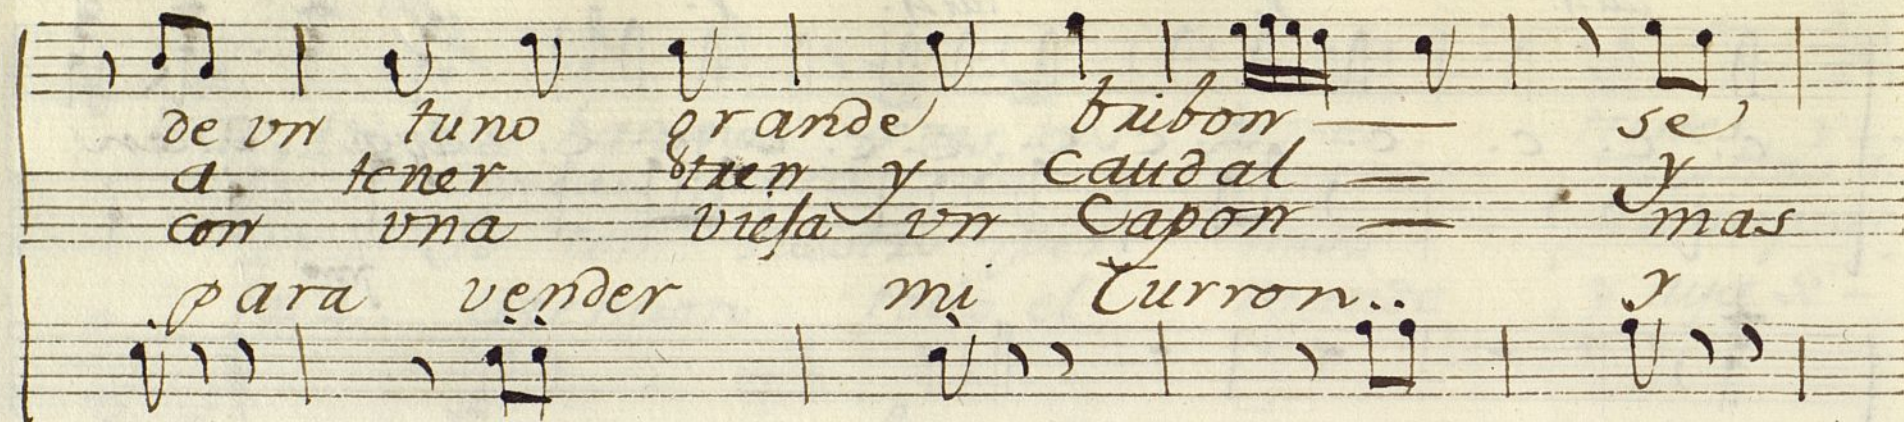 de vn tuno grande bribon se
a tener tren y Caudal y
con vna vieja vn Capon mas
para vender mi Turron.. y